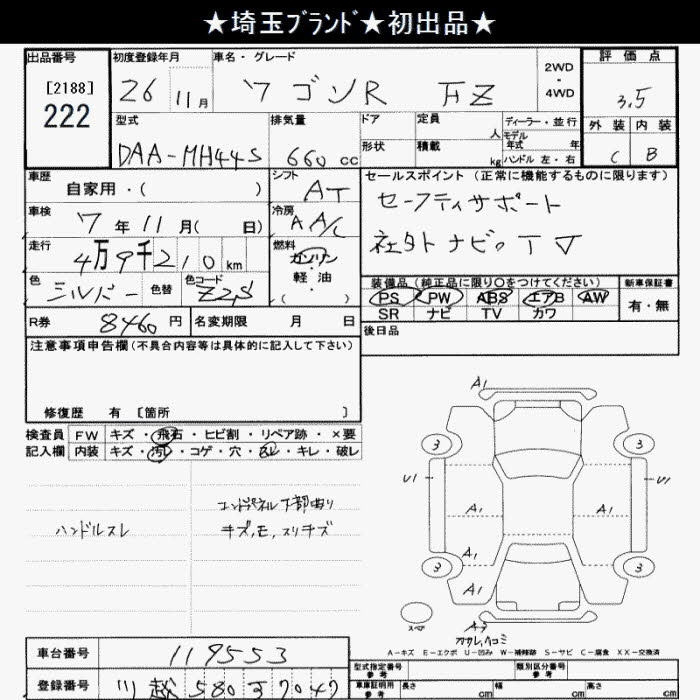 ★埼玉ﾌﾞﾗﾝﾄﾞ★初出品★
出品番号 初度登録年月 車名・グレード 評価点
[2188] 222 26 11月 ワゴンR FZ 2WD・4WD 3.5
型式 排気量 ドア 定員 人 ディーラー・並行 外装 内装
モデル年式 年
DAA-MH44S 660cc 形状 積載 kg ハンドル 左・右 C B
車歴 自家用・( ) シフト AT セールスポイント(正常に機能するものに限ります)
車検 7年11月( 日) 冷房 AA/C セーフティサポート
走行 4万9千210km 燃料 ガソリン・軽油・( ) 社外ナビ TV
色 シルバー 色替 色コード Z2S 装備品(純正品に限り〇をつけてください) 新車保証書
PS PW ABS エアB AW 有・無
R券 8460円 名変期限 月 日 SR ナビ TV カワ
後日品
注意事項申告欄(不具合内容等は具体的に記入して下さい)
修復歴 有 [箇所 ]
検査員 FW キズ・飛石・ヒビ割・リペア跡・×要
記入欄 内装 キズ・汚レ・コゲ・穴・スレ・キレ・破レ
エンドパネル下部曲り
ハンドルスレ キズ,モ,スリキズ
A1
3 3
U1 U1
A1 A1
A1
3 3
A1
スペア
カサレ,ヘコミ
A-キズ E-エクボ U-凹み W-補修跡 S-サビ C-腐食 XX-交換済
車台番号 119553 型式指定番号 参考 類別区分番号 参考
登録番号 川越 580 す 7047 車庫証明用 参考 長さ cm 幅 cm 高さ cm